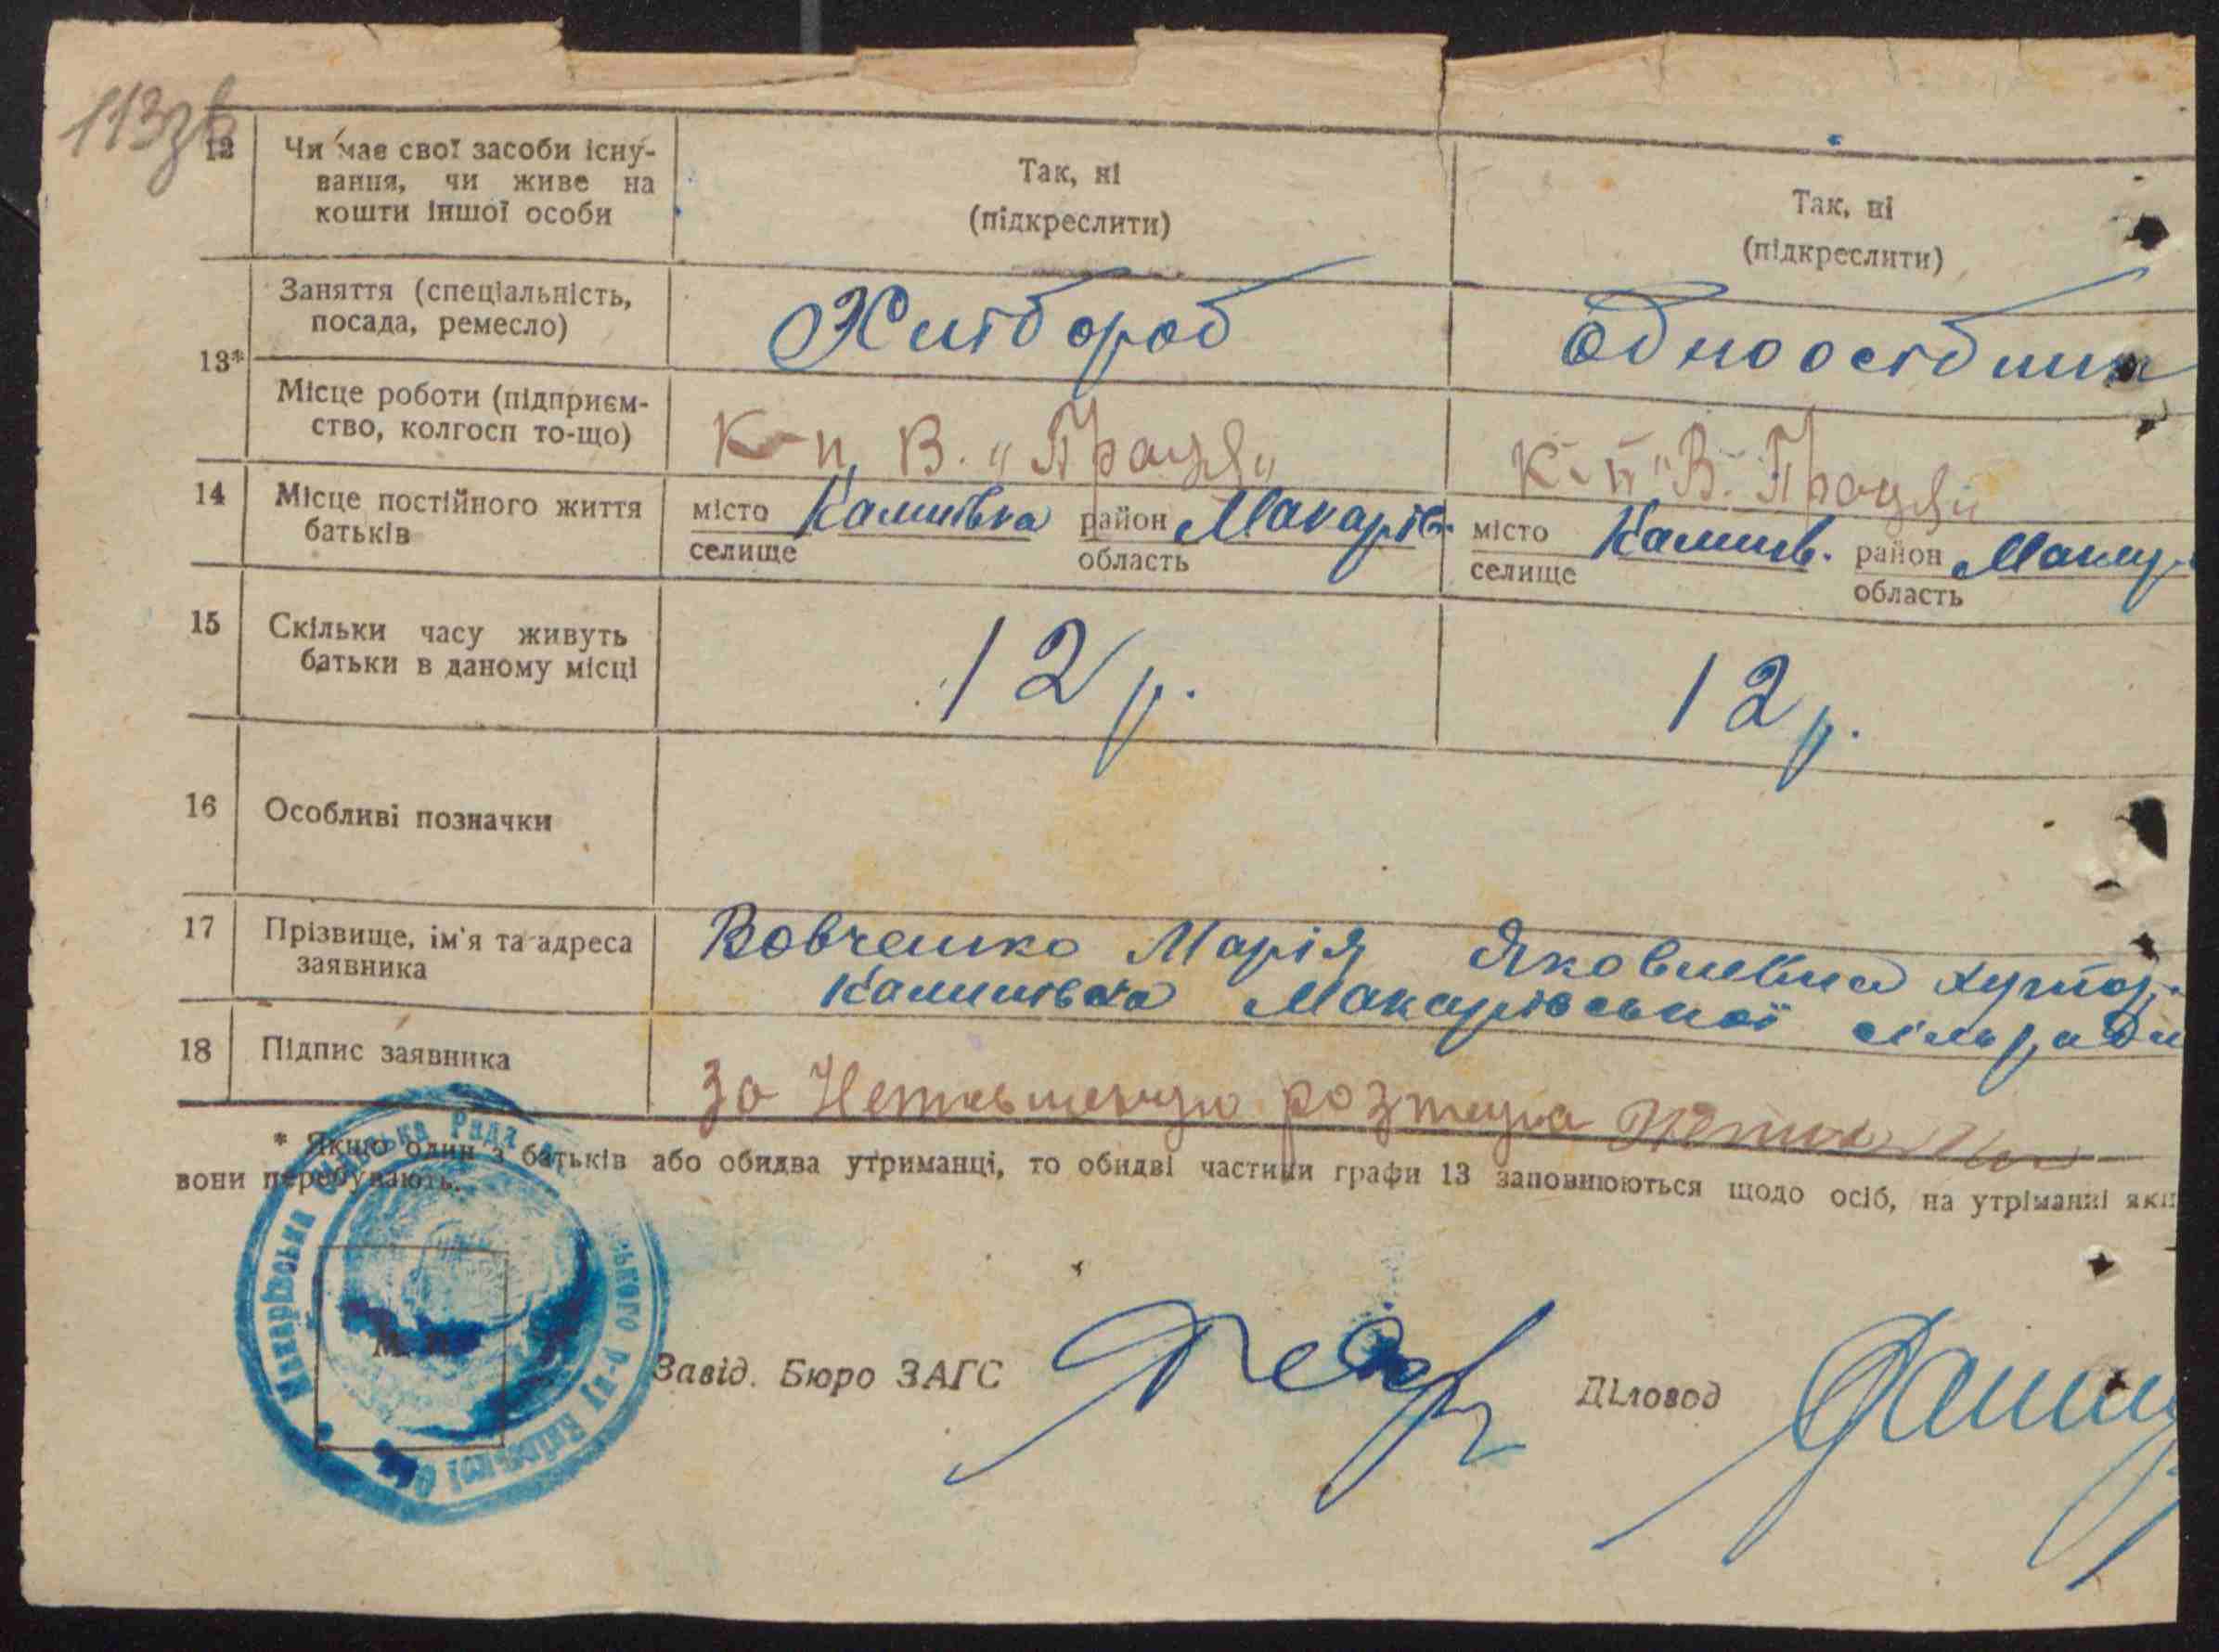 113зв
12 Чи має свої засоби існу-
вання, чи живе на
кошти іншої особи
Так, ні
(підкреслити)
Так, ні
(підкреслити)
13*
Заняття (спеціальність,
посада, ремесло)
Хлібороб
Одноосібник
Місце роботи (підприєм-
ство, колгосп то-що)
К-п В. „Праця„
К-п „В. Праця„
14 Місце постійного життя
батьків
місто Калинівка район Макарів.
селище область
місто Калинів. район Макар
селище область
15 Скільки часу живуть
батьки в даному місці
12 р.
12 р.
16 Особливі позначки
17 Прізвище, ім'я та адреса
заявника
Вовченко Марія Яковлевна хутор.
Калинівка Макарівської сільради
18 Підпис заявника
За розписа
* Якщо один з батьків або обидва утриманці, то обидві частини графи 13 заповнюються щодо осіб, на утріманні яки
вони перебувають.
Макарівська Рада
М. П.
Завід. Бюро ЗАГС
Діловод